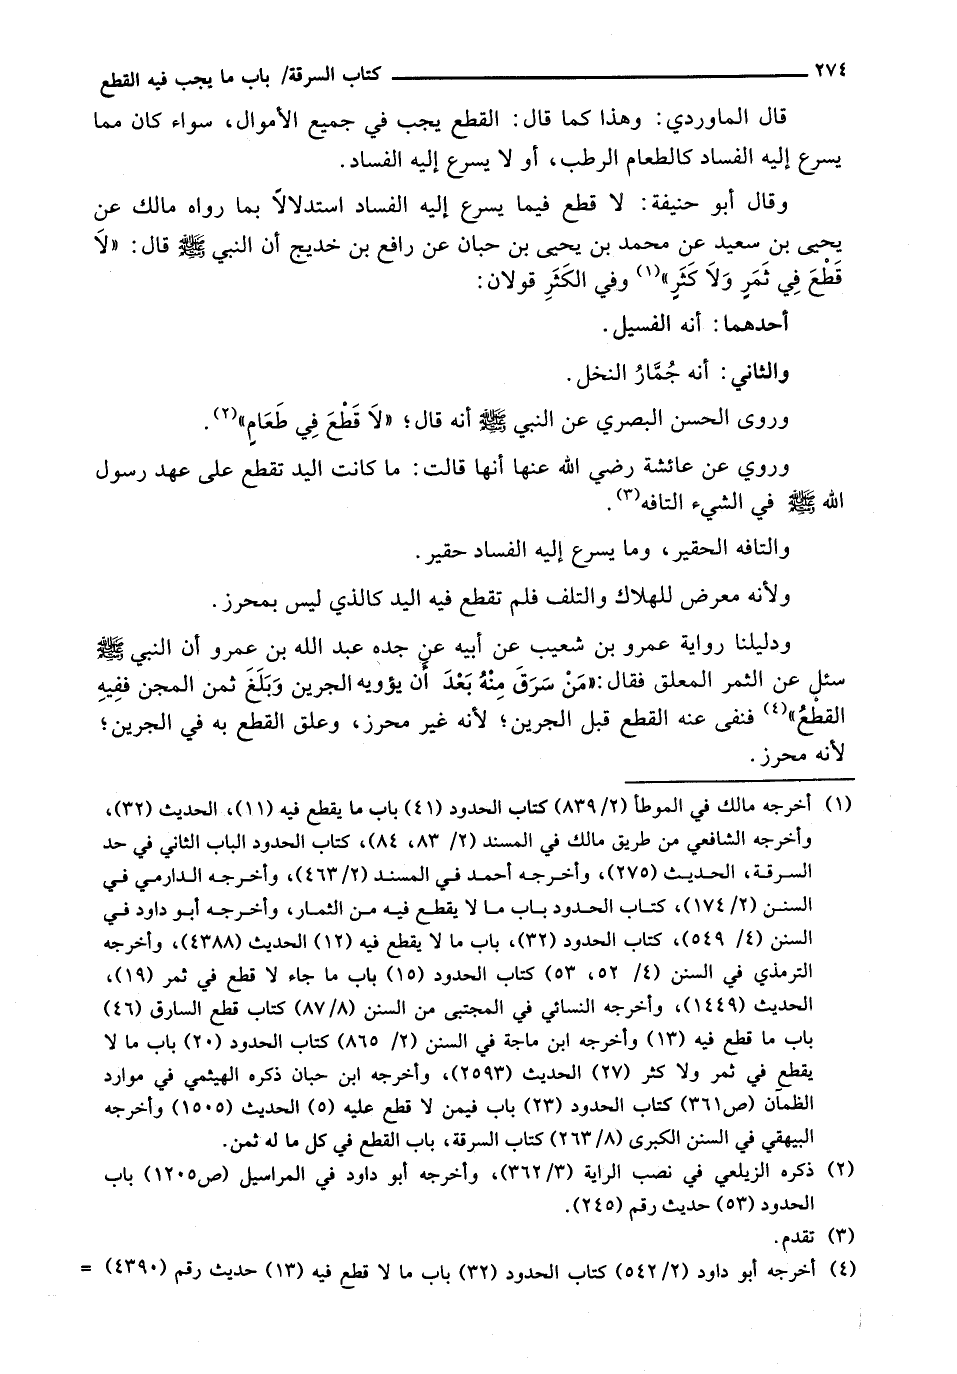 ٢٧٤ ــــــــــــ كتاب السرقة/ باب ما يجب فيه القطع
قال الماوردي: وهذا كما قال: القطع يجب في جميع الأموال، سواء كان مما
يسرع إليه الفساد كالطعام الرطب، أو لا يسرع إليه الفساد.
وقال أبو حنيفة: لا قطع فيما يسرع إليه الفساد استدلالاً بما رواه مالك عن
يحيى بن سعيد عن محمد بن يحيى بن حبان عن رافع بن خديج أن النبي ﷺ قال: «لَا
قَطْعَ فِي ثَمَرٍ وَلَا كَثَرٍ»(١) وفي الكَثَرِ قولان:
أحدهما: أنه الفسيل.
والثاني: أنه جُمَّارُ النخل.
وروى الحسن البصري عن النبي ﷺ أنه قال؛ «لَا قَطْعَ فِي طَعَامٍ»(٢).
وروي عن عائشة رضي الله عنها أنها قالت: ما كانت اليد تقطع على عهد رسول
الله ﷺ في الشيء التافه(٣).
والتافه الحقير، وما يسرع إليه الفساد حقير.
ولأنه معرض للهلاك والتلف فلم تقطع فيه اليد كالذي ليس بمحرز.
ودليلنا رواية عمرو بن شعيب عن أبيه عن جده عبد الله بن عمرو أن النبي ﷺ
سئل عن الثمر المعلق فقال: «مَنْ سَرَقَ مِنْهُ بَعْدَ أَن يؤويه الجرين وَبَلَغَ ثمن المجن ففِيهِ
القطْعُ»(٤) فنفى عنه القطع قبل الجرين؛ لأنه غير محرز، وعلق القطع به في الجرين؛
لأنه محرز.
(١) أخرجه مالك في الموطأ (٨٣٩/٢) كتاب الحدود (٤١) باب ما يقطع فيه (١١)، الحديث (٣٢)،
وأخرجه الشافعي من طريق مالك في المسند (٢/ ٨٣، ٨٤)، كتاب الحدود الباب الثاني في حد
السرقة، الحديث (٢٧٥)، وأخرجه أحمد في المسند (٤٦٣/٢)، وأخرجه الدارمي في
السنن (١٧٤/٢)، كتاب الحدود باب ما لا يقطع فيه من الثمار، وأخرجه أبو داود في
السنن (٤/ ٥٤٩)، كتاب الحدود (٣٢)، باب ما لا يقطع فيه (١٢) الحديث (٤٣٨٨)، وأخرجه
الترمذي في السنن (٤/ ٥٢، ٥٣) كتاب الحدود (١٥) باب ما جاء لا قطع في ثمر (١٩)،
الحديث (١٤٤٩)، وأخرجه النسائي في المجتبى من السنن (٨٧/٨) كتاب قطع السارق (٤٦)
باب ما قطع فيه (١٣) وأخرجه ابن ماجة في السنن (٢/ ٨٦٥) كتاب الحدود (٢٠) باب ما لا
يقطع في ثمر ولا كثر (٢٧) الحديث (٢٥٩٣)، وأخرجه ابن حبان ذكره الهيثمي في موارد
الظمآن (ص٣٦١) كتاب الحدود (٢٣) باب فيمن لا قطع عليه (٥) الحديث (١٥٠٥) وأخرجه
البيهقي في السنن الكبرى (٢٦٣/٨) كتاب السرقة، باب القطع في كل ما له ثمن.
(٢) ذكره الزيلعي في نصب الراية (٣٦٢/٣)، وأخرجه أبو داود في المراسيل (ص١٢٠٥) باب
الحدود (٥٣) حديث رقم (٢٤٥).
(٣) تقدم.
(٤) أخرجه أبو داود (٥٤٢/٢) كتاب الحدود (٣٢) باب ما لا قطع فيه (١٣) حديث رقم (٤٣٩٠) =